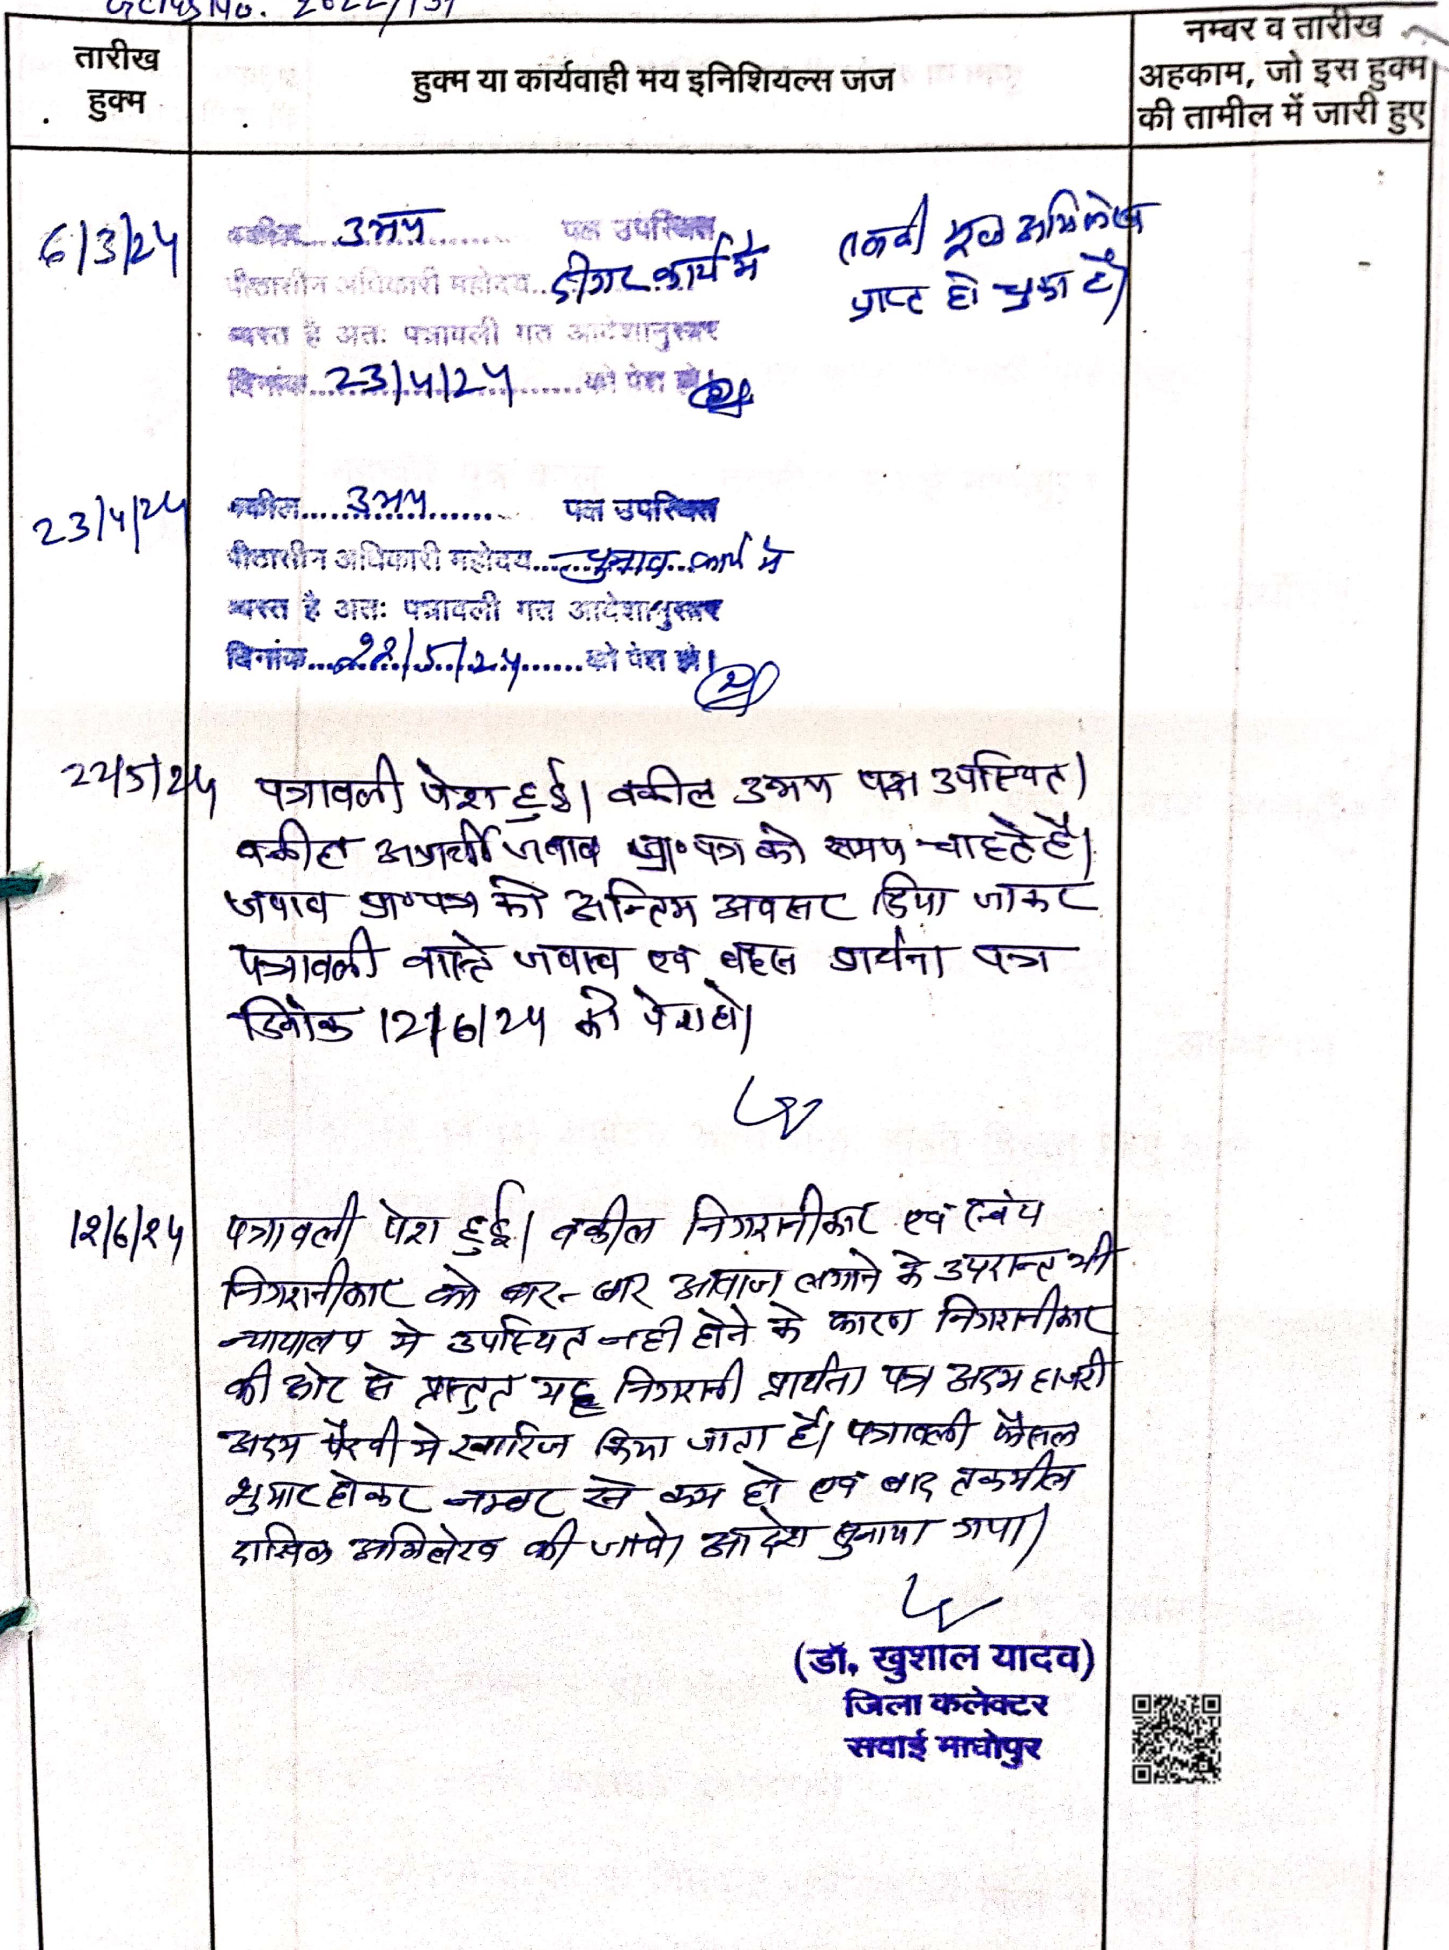 तारीख
हुक्म
हुक्म या कार्यवाही मय इनिशियल्स जज
नम्बर व तारीख
अहकाम, जो इस हुक्म
की तामील में जारी हुए
6/3/24
वकील....उभय.... पक्ष उपस्थित
पीठासीन अधिकारी महोदय...डीगर कार्य मे
व्यस्त है अतः पत्रावली गत आदेशानुसार
दिनांक...23/4/24...को पेश हो।
मूल अभिलेख
प्राप्त हो चुका है)
23/4/24
वकील....उभय.... पक्ष उपस्थित
पीठासीन अधिकारी महोदय...चुनाव...कार्य मे
व्यस्त है अतः पत्रावली गत आदेशानुसार
दिनांक...22/5/24...को पेश हो।
22/5/24
पत्रावली पेश हुई। वकील उभय पक्ष उपस्थित।
वकील अप्रार्थी जवाब प्रा॰पत्र को समय चाहते है।
जवाब प्रा॰पत्र को अन्तिम अवसर दिया जाकर
पत्रावली वास्ते जवाब एवं बहस प्रार्थना पत्र
दिनांक 12/6/24 को पेश हो।
12/6/24
पत्रावली पेश हुई। वकील निगरानीकार एवं स्वंय
निगरानीकार को बार-बार आवाज लगाने के उपरान्त भी
न्यायालय मे उपस्थित नही होने के कारण निगरानीकार
की ओर से प्रस्तुत यह निगरानी प्रार्थना पत्र अदम हाजरी
अदम पैरवी मे खारिज किया जाता है। पत्रावली फैसल
शुमार होकर नम्बर से कम हो एवं बाद तकमील
दाखिल अभिलेख की जावे। आदेश सुनाया गया।
(डॉ. खुशाल यादव)
जिला कलेक्टर
सवाई माधोपुर